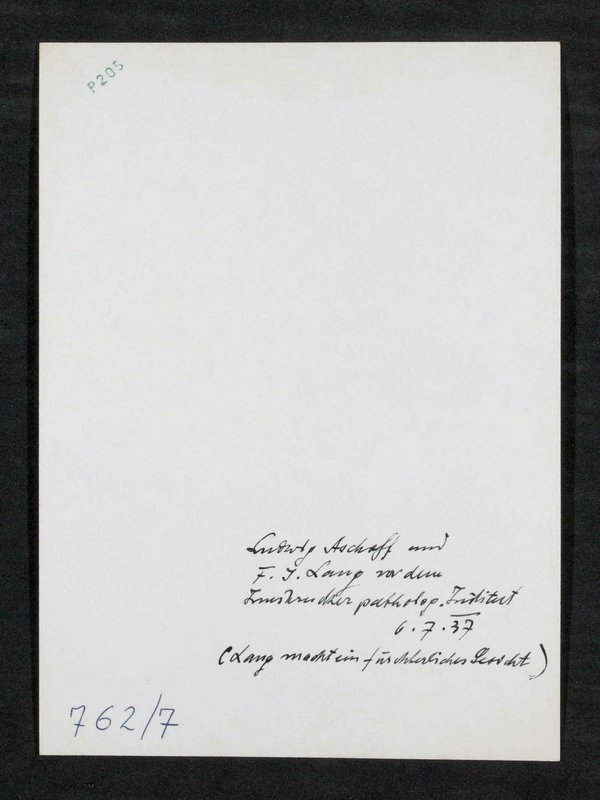 P205
Ludwig Aschoff und
F. J. Lang vor dem
Innsbrucker patholog. Institut
6.7.37
(Lang macht ein fürchterliches Gesicht)
762/7